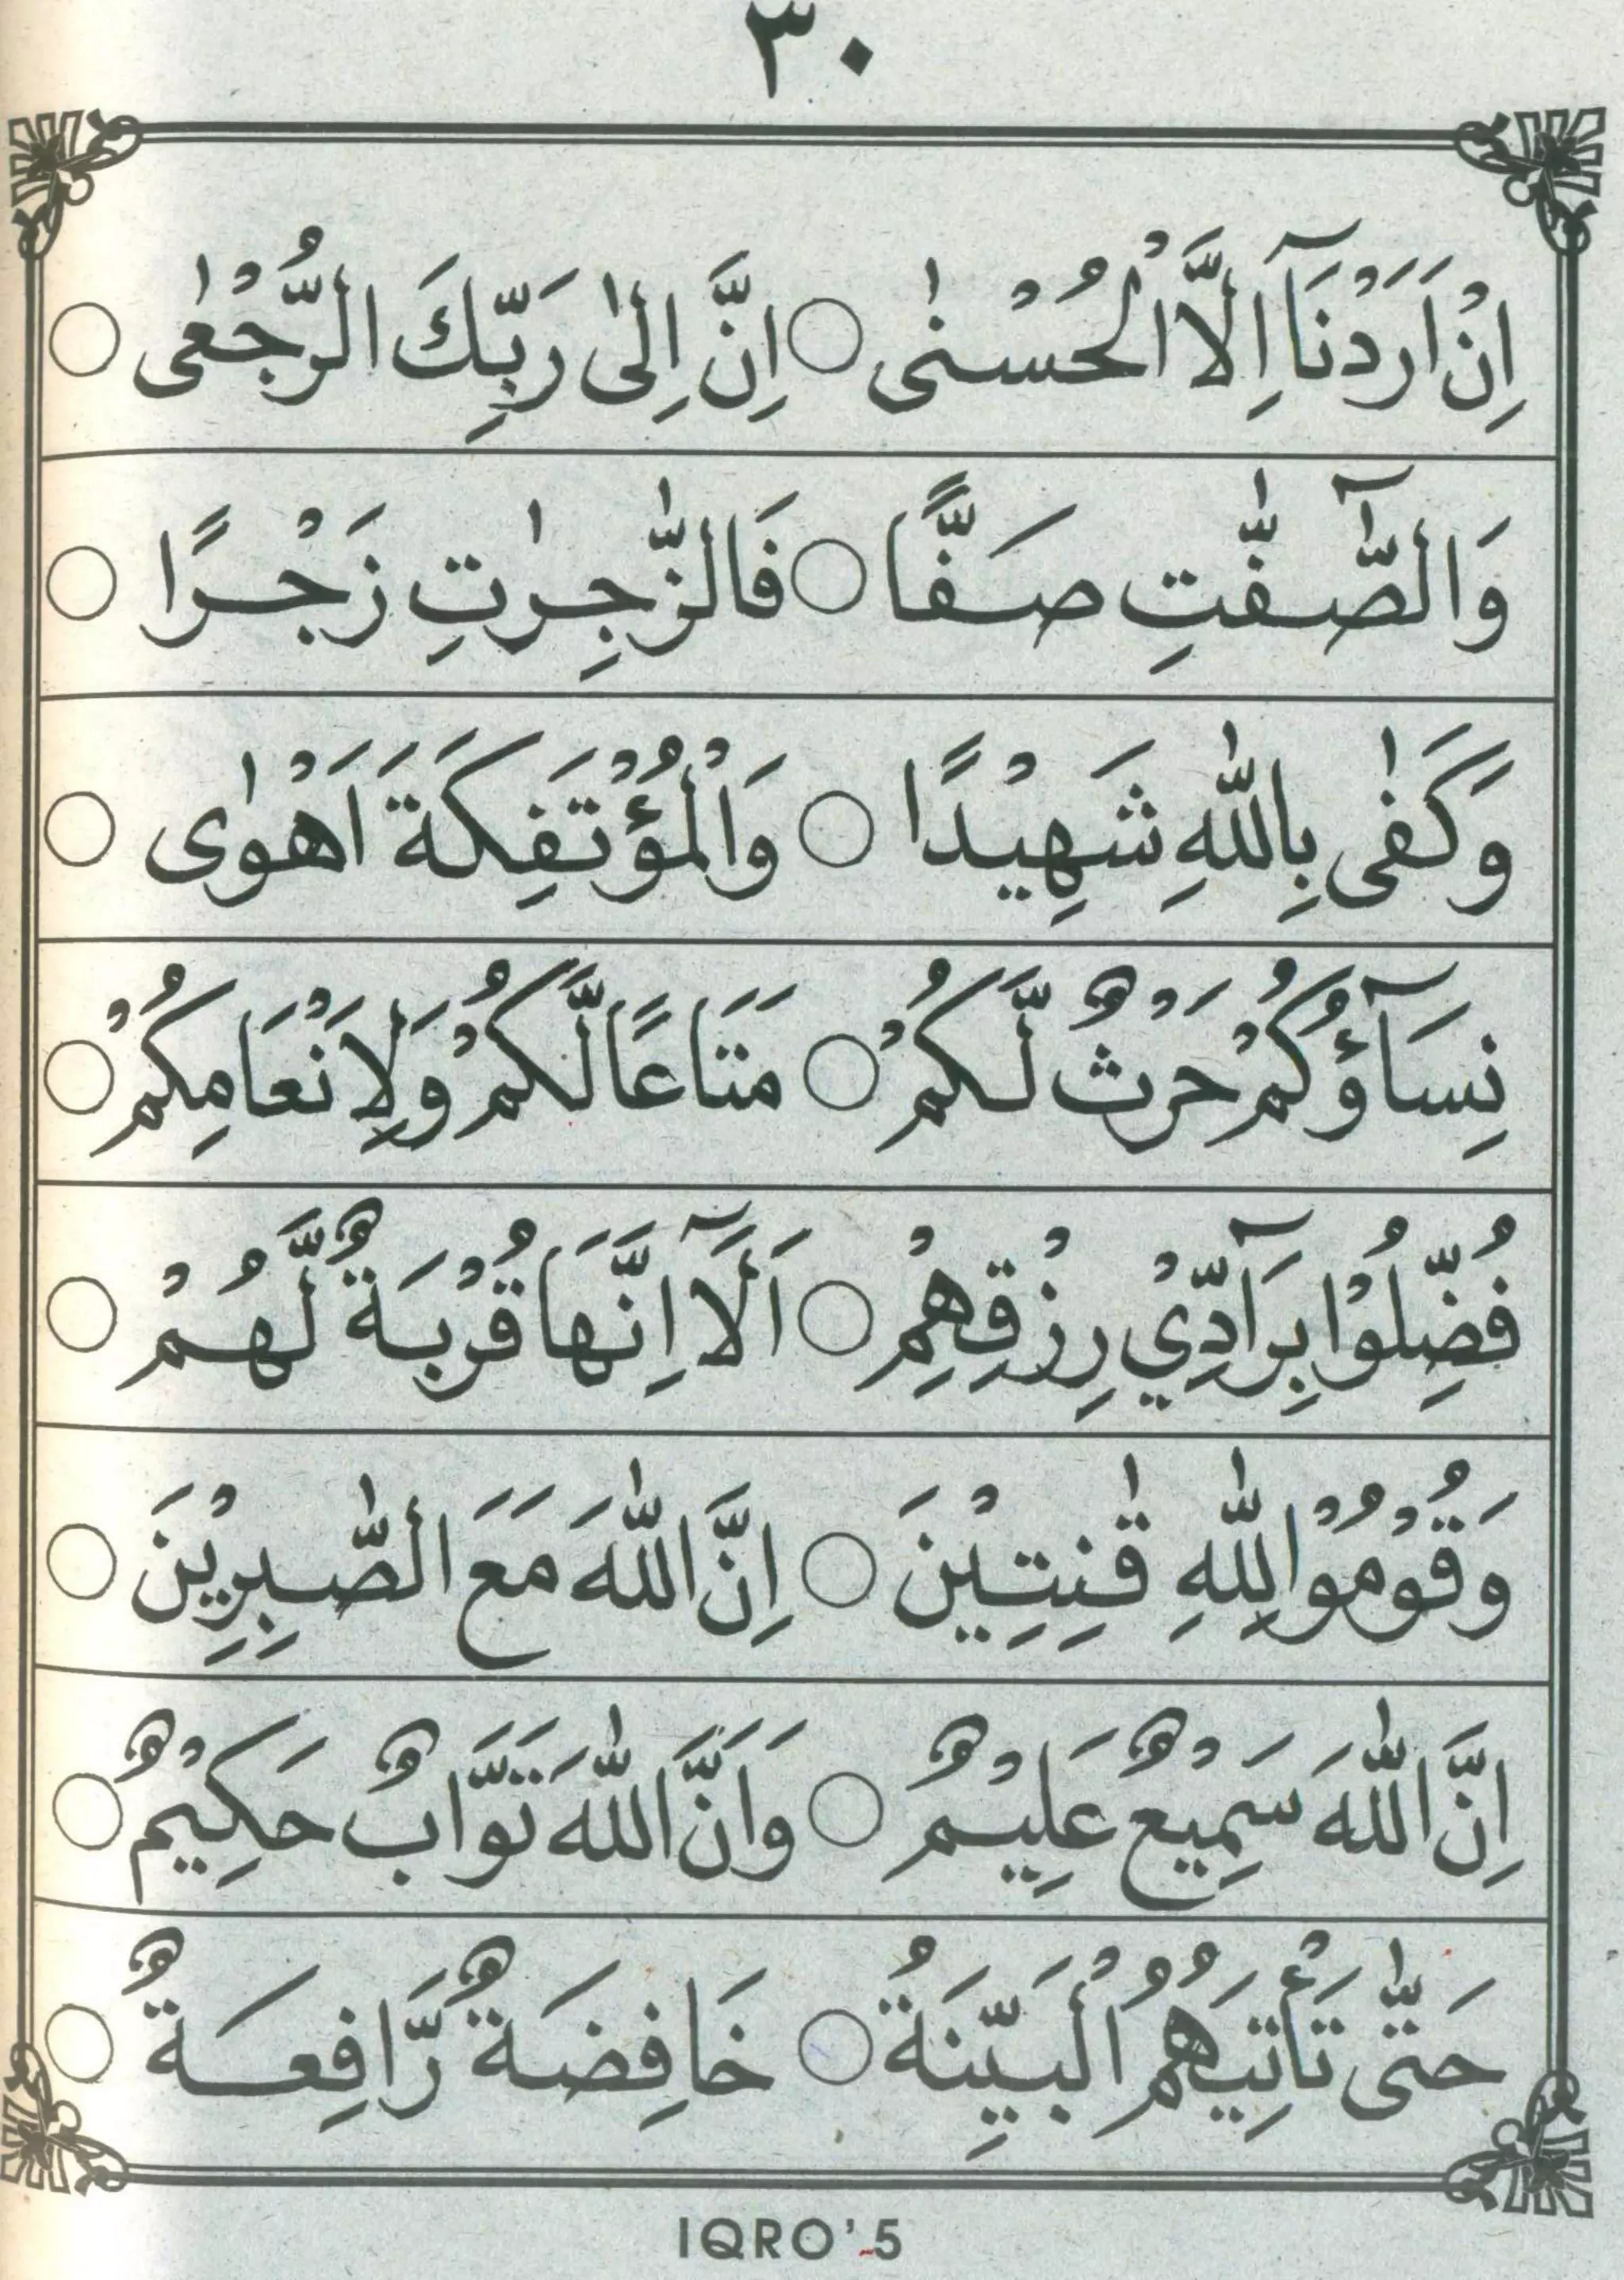 ٣٠
اِنْ اَرَدْنَآ اِلَّا الْحُسْنٰى ○ اِنَّ اِلٰى رَبِّكَ الرُّجْعٰى ○
وَالصّٰٓفّٰتِ صَفًّا ○ فَالزّٰجِرٰتِ زَجْرًا ○
وَكَفٰى بِاللّٰهِ شَهِيْدًا ○ وَالْمُؤْتَفِكَةَ اَهْوٰى ○
نِسَآؤُكُمْ حَرْثٌ لَّكُمْ ○ مَتَاعًا لَّكُمْ وَلِاَنْعَامِكُمْ ○
فُضِّلُوْا بِرَآدِّيْ رِزْقِهِمْ ○ اَلَآ اِنَّهَا قُرْبَةٌ لَّهُمْ ○
وَقُوْمُوْا لِلّٰهِ قٰنِتِيْنَ ○ اِنَّ اللّٰهَ مَعَ الصّٰبِرِيْنَ ○
اِنَّ اللّٰهَ سَمِيْعٌ عَلِيْمٌ ○ وَاَنَّ اللّٰهَ تَوَّابٌ حَكِيْمٌ ○
حَتّٰى تَأْتِيَهُمُ الْبَيِّنَةُ ○ خَافِضَةٌ رَّافِعَةٌ ○
IQRO' 5